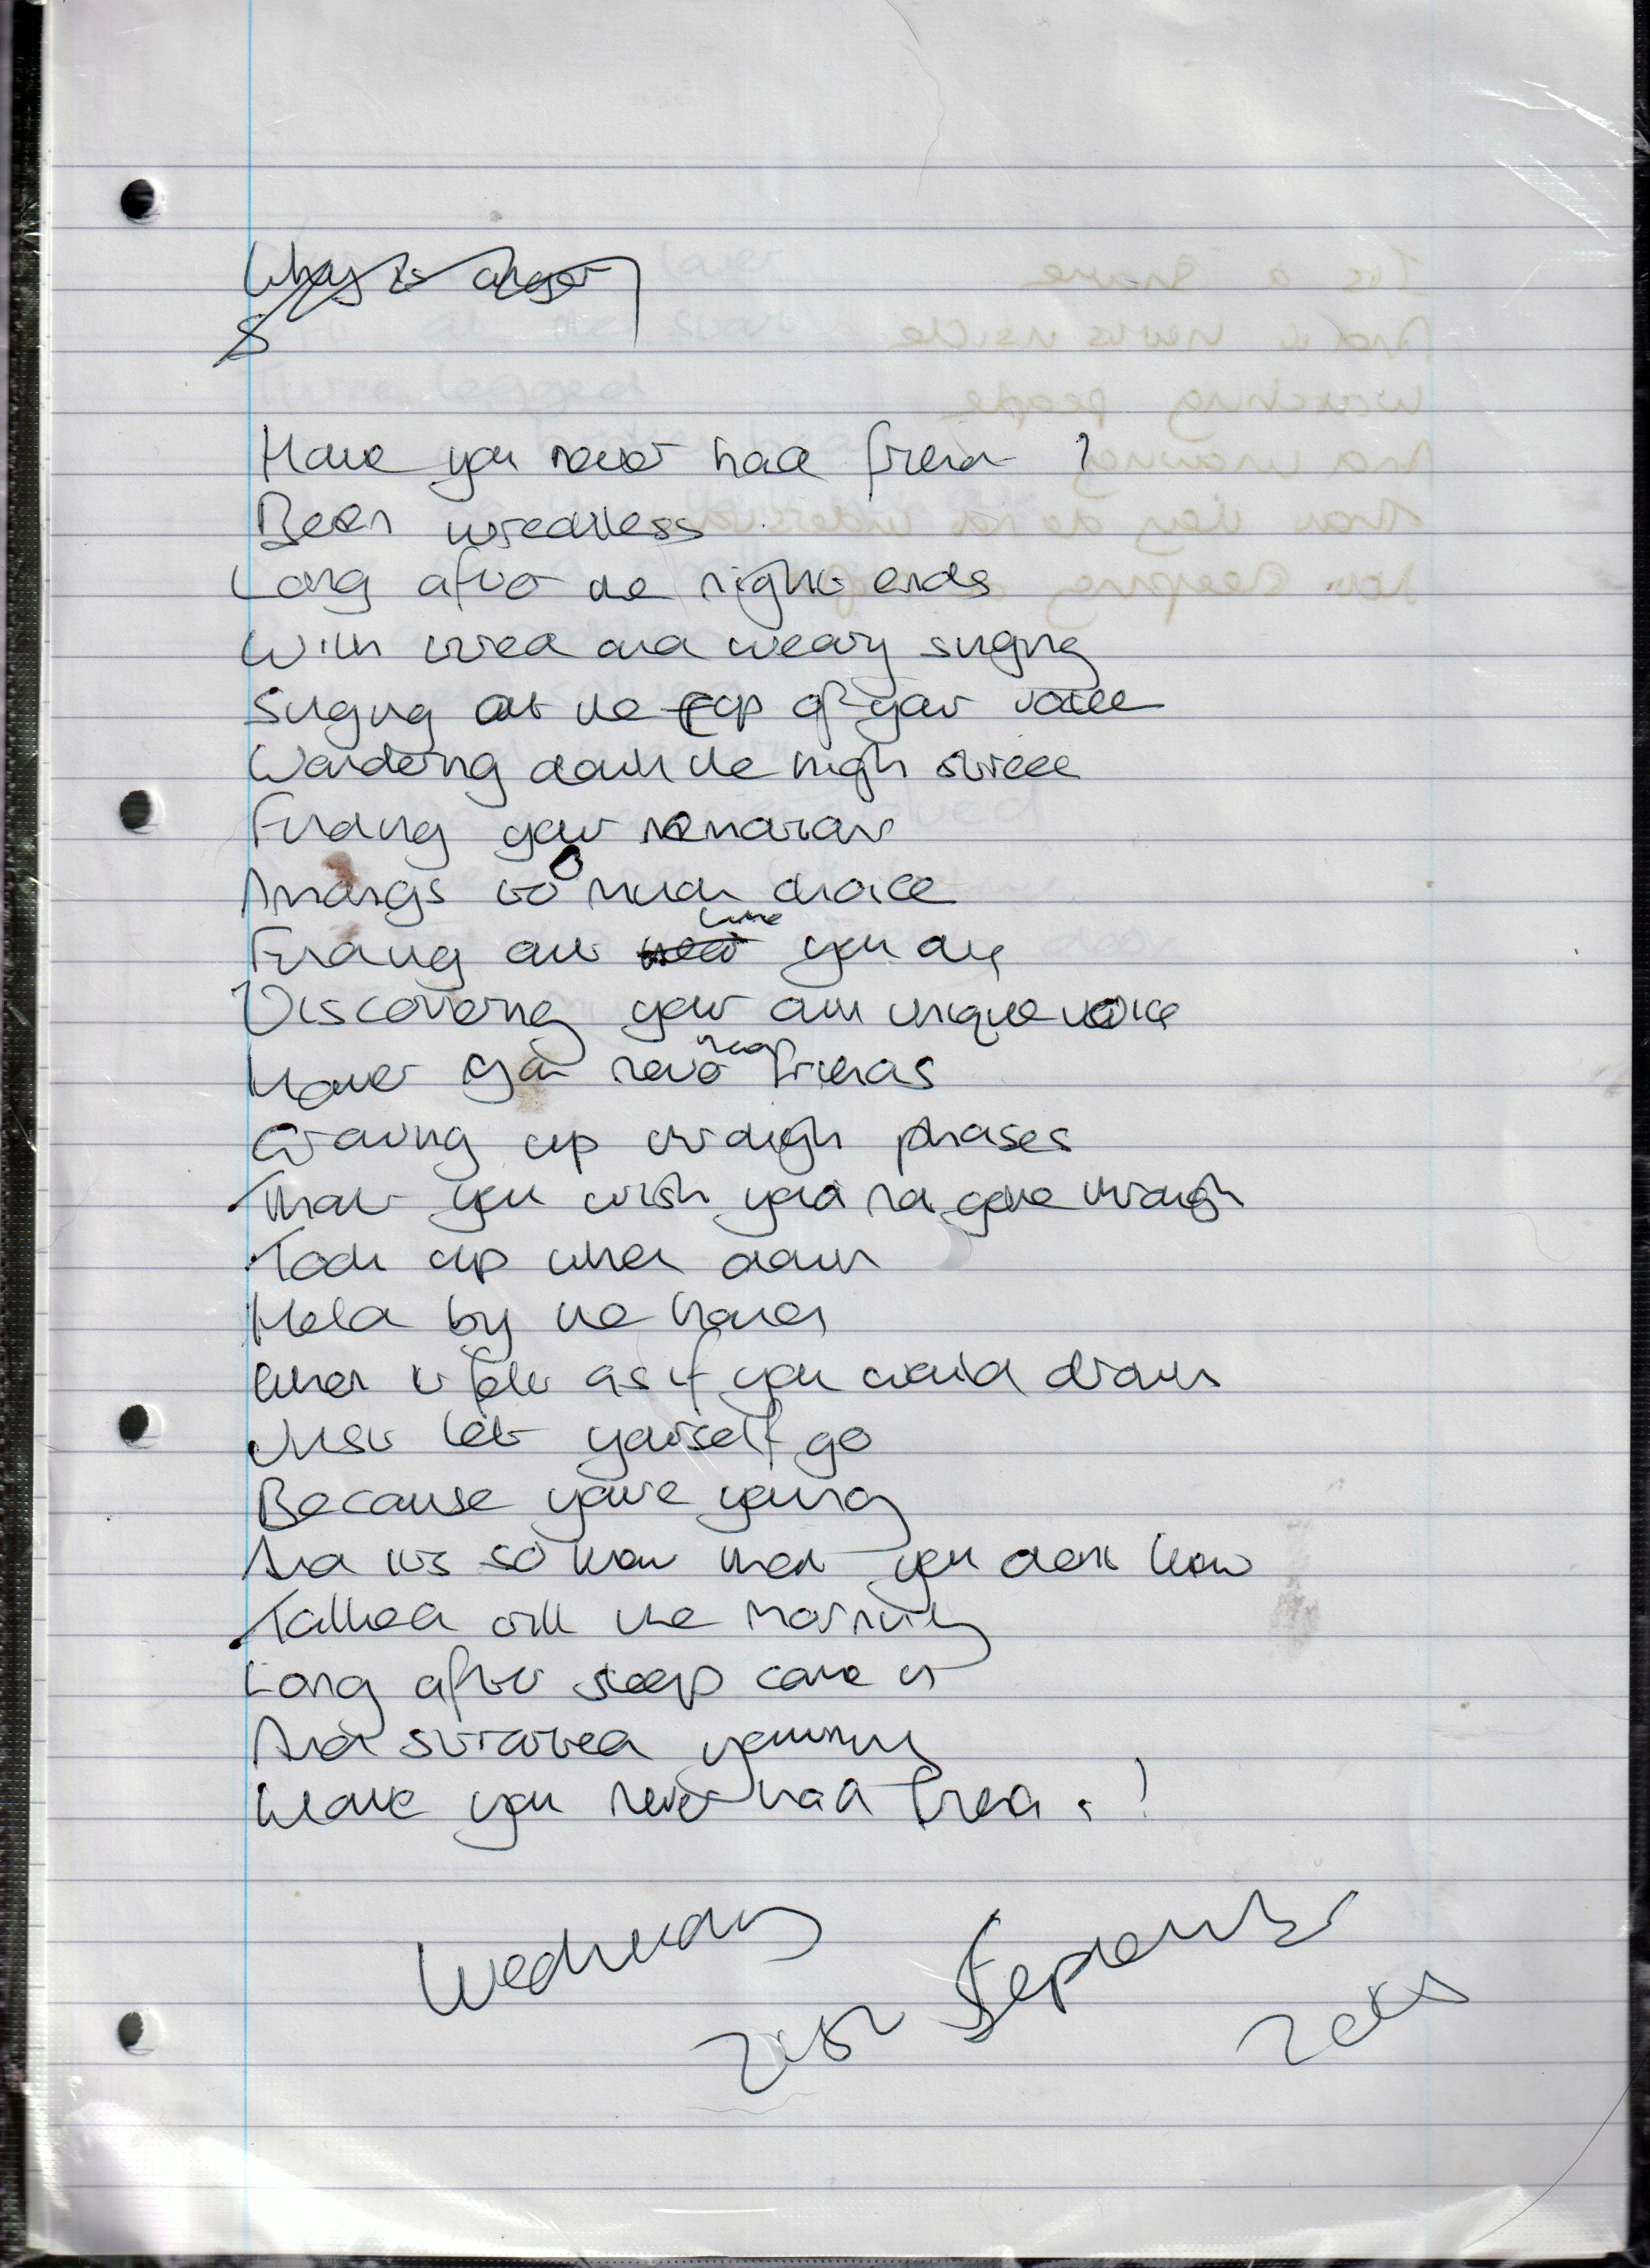 Have you never had friend ?
Been
Long after the night ends
With tired and weary singing
Singing at the top of your voice
Wandering down the high street
Finding your
Amongs to much choice
Finding out time you are
Discovering your own unique voice
Have you never had friends
Growing up through phases
That you wish you'd not gone through
Took up when down
Held by the hand
When it felt as if you would drown
Just let yourself go
Because you're young
And its so know that you dont know
Talked till the morning
Long after sleep came in
And started yawning
Have you never had friend . !
Wednesday
21st September